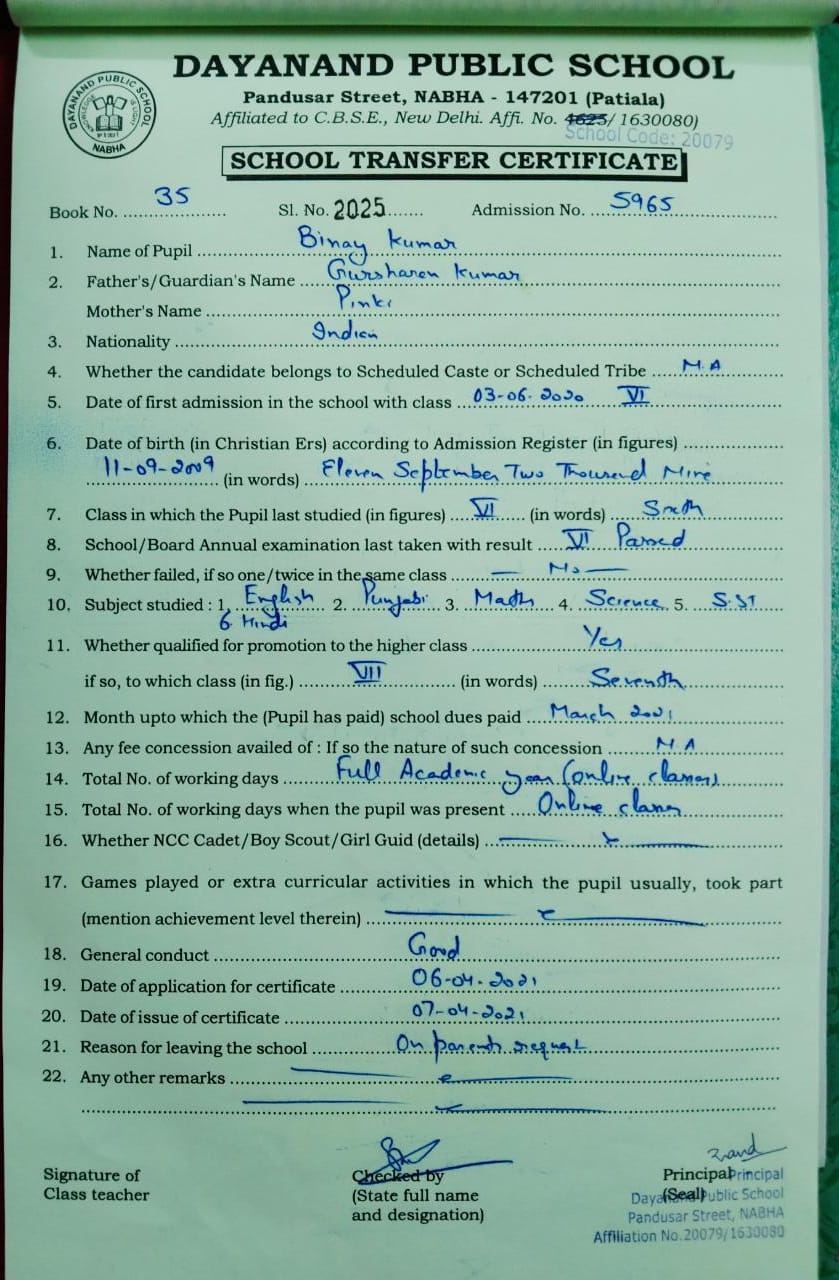 DAYANAND PUBLIC SCHOOL
Pandusar Street, NABHA - 147201 (Patiala)
Affiliated to C.B.S.E., New Delhi. Affi. No. 4625/ 1630080)
School Code: 20079
DAYANAND PUBLIC SCHOOL
NABHA
SCHOOL TRANSFER CERTIFICATE
Book No. 35 Sl. No. 2025 Admission No. 5965
1. Name of Pupil Binay Kumar
2. Father's/Guardian's Name Gursharen Kumar
Mother's Name Pinki
3. Nationality Indian
4. Whether the candidate belongs to Scheduled Caste or Scheduled Tribe N.A
5. Date of first admission in the school with class 03-06-2020 VI
6. Date of birth (in Christian Ers) according to Admission Register (in figures)
11-09-2009 (in words) Eleven September Two Thousand Nine
7. Class in which the Pupil last studied (in figures) VI (in words) Sixth
8. School/Board Annual examination last taken with result VI Passed
9. Whether failed, if so one/twice in the same class — No —
10. Subject studied : 1. English 2. Punjabi 3. Math 4. Science 5. S.ST
6 Hindi
11. Whether qualified for promotion to the higher class Yes
if so, to which class (in fig.) VII (in words) Seventh
12. Month upto which the (Pupil has paid) school dues paid March 2021
13. Any fee concession availed of : If so the nature of such concession N A
14. Total No. of working days Full Academic year (online classes)
15. Total No. of working days when the pupil was present Online classes
16. Whether NCC Cadet/Boy Scout/Girl Guid (details)
17. Games played or extra curricular activities in which the pupil usually, took part
(mention achievement level therein)
18. General conduct Good
19. Date of application for certificate 06-04-2021
20. Date of issue of certificate 07-04-2021
21. Reason for leaving the school On parents request
22. Any other remarks
Signature of
Class teacher
Checked by
(State full name
and designation)
Principal
(Seal)
Principal
Dayanand Public School
Pandusar Street, NABHA
Affiliation No.20079/1630080